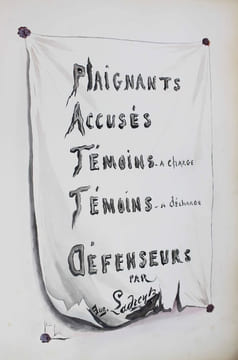 PlAiGNANTS
ACCUSÉS
TÉMOiNS - A CHARGE
TÉMOiNS - A déchARGE
DÉFENSEURS
PAR
Ladreyt